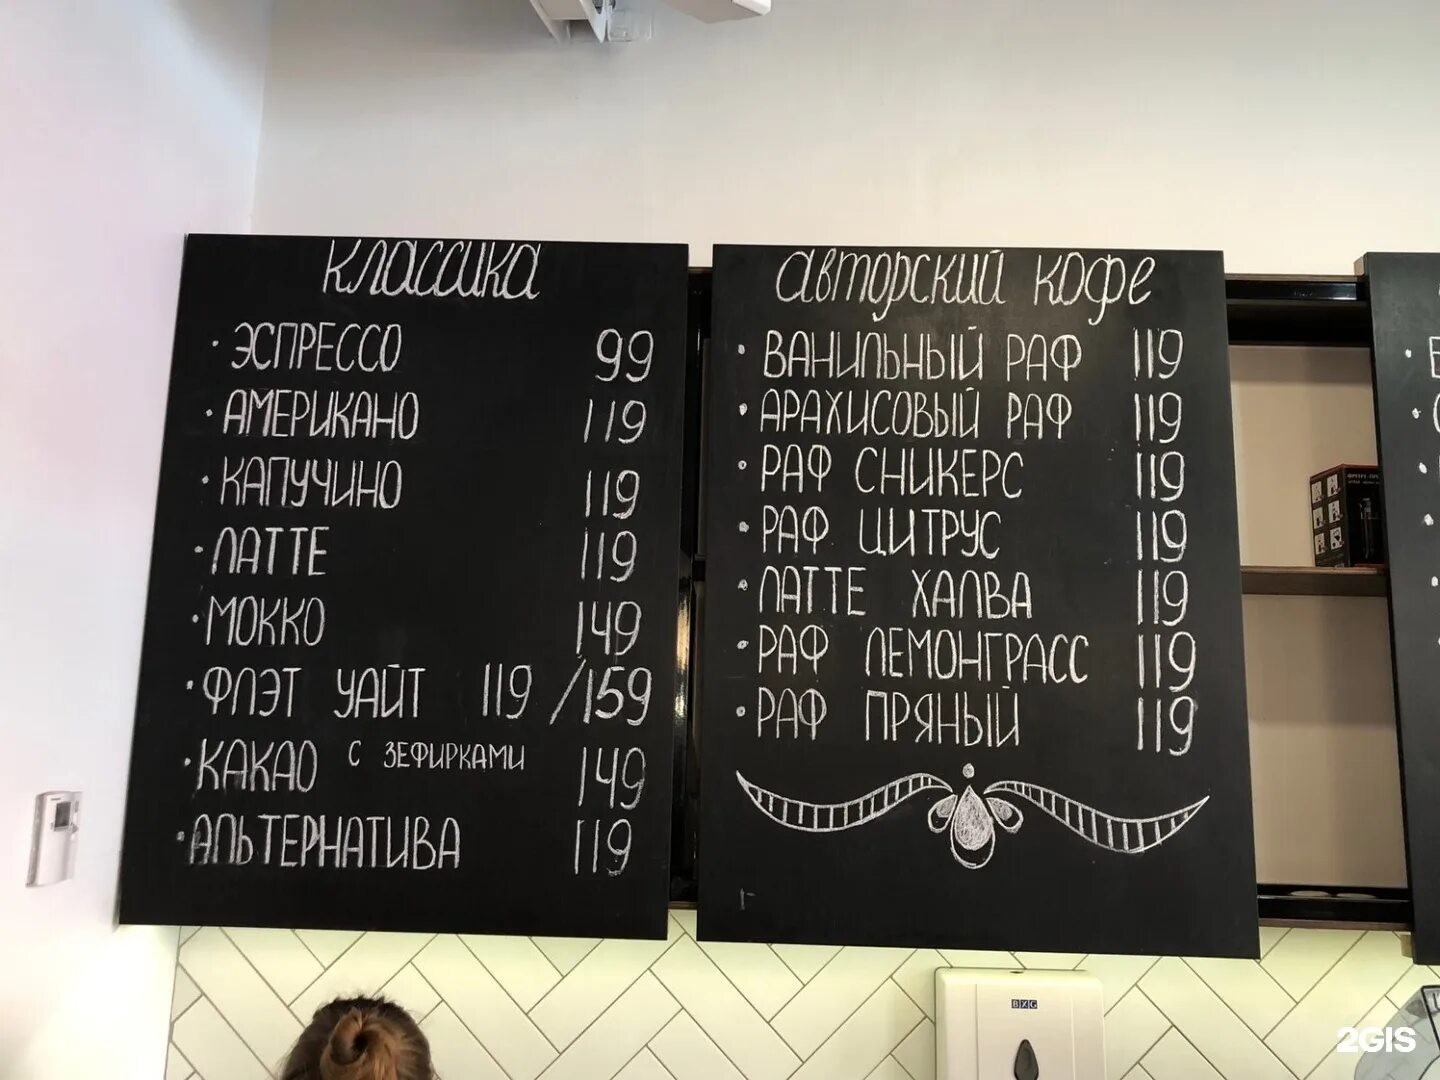 Классика
· ЭСПРЕССО 99
· АМЕРИКАНО 119
· КАПУЧИНО 119
· ЛАТТЕ 119
· МОККО 149
· ФЛЭТ УАЙТ 119/159
· КАКАО С ЗЕФИРКАМИ 149
· АЛЬТЕРНАТИВА 119
авторский кофе
· ВАНИЛЬНЫЙ РАФ 119
· АРАХИСОВЫЙ РАФ 119
· РАФ СНИКЕРС 119
· РАФ ЦИТРУС 119
· ЛАТТЕ ХАЛВА 119
· РАФ ЛЕМОНГРАСС 119
· РАФ ПРЯНЫЙ 119
BXG
2GIS